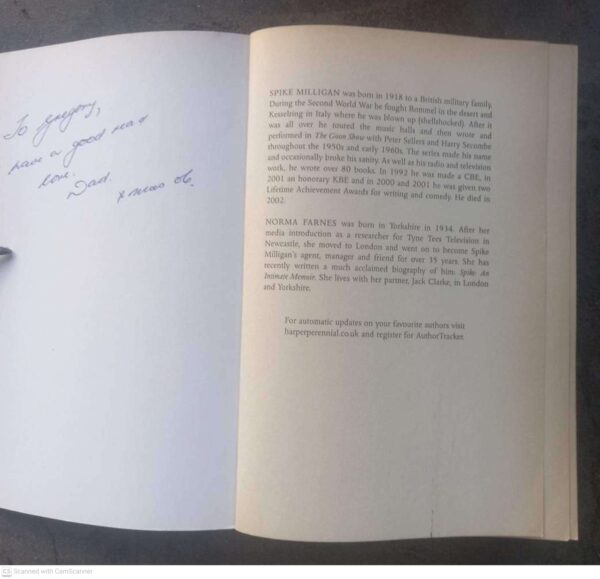 To Gregory,
have a good read
love.
Dad.
x mas 06.
SPIKE MILLIGAN was born in 1918 to a British military family.
During the Second World War he fought Rommel in the desert and
Kesselring in Italy where he was blown up (shellshocked). After it
was all over he toured the music halls and then wrote and
performed in The Goon Show with Peter Sellers and Harry Secombe
throughout the 1950s and early 1960s. The series made his name
and occasionally broke his sanity. As well as his radio and television
work, he wrote over 80 books. In 1992 he was made a CBE, in
2001 an honorary KBE and in 2000 and 2001 he was given two
Lifetime Achievement Awards for writing and comedy. He died in
2002.
NORMA FARNES was born in Yorkshire in 1934. After her
media introduction as a researcher for Tyne Tees Television in
Newcastle, she moved to London and went on to become Spike
Milligan's agent, manager and friend for over 35 years. She has
recently written a much acclaimed biography of him: Spike: An
Intimate Memoir. She lives with her partner, Jack Clarke, in London
and Yorkshire.
For automatic updates on your favourite authors visit
harperperennial.co.uk and register for AuthorTracker.
CS Scanned with CamScanner